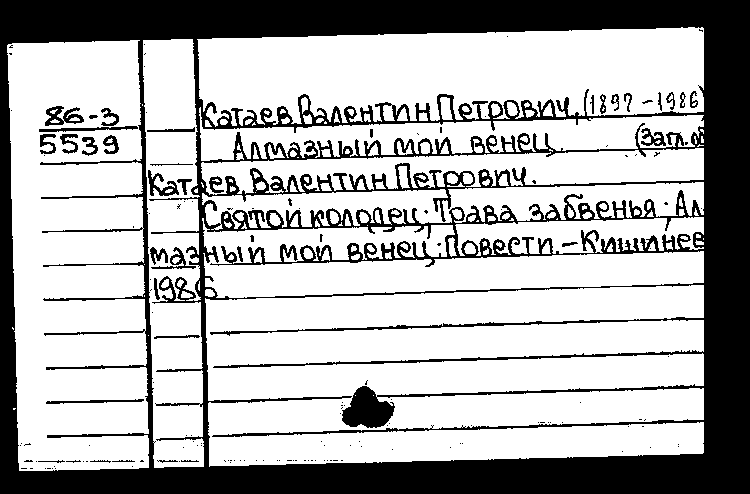 86-3
5539
Катаев, Валентин Петрович, (1897-1986)
Алмазный мой венец. (Загл. об
Катаев, Валентин Петрович.
Святой колодец; Трава забвенья; Ал-
мазный мой венец: Повести. - Кишинев
1986.